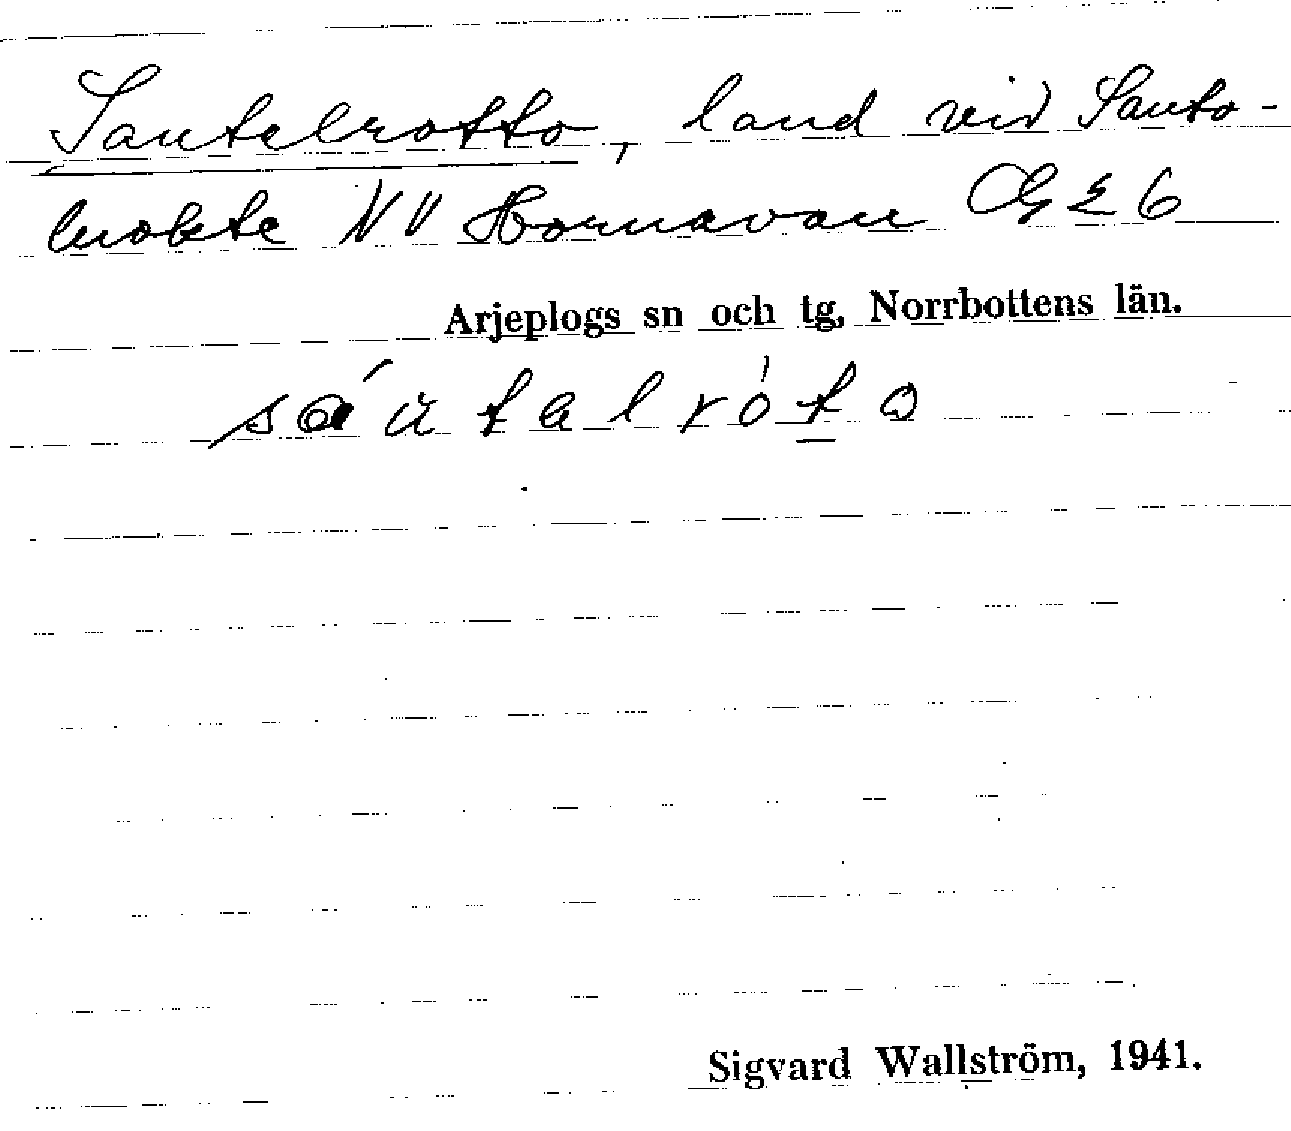 Sautelrotto, land vid Sauto-
luokte NV Hornavan G 6
Arjeplogs sn och tg, Norrbottens län.
sáutalróto
Sigvard Wallström, 1941.